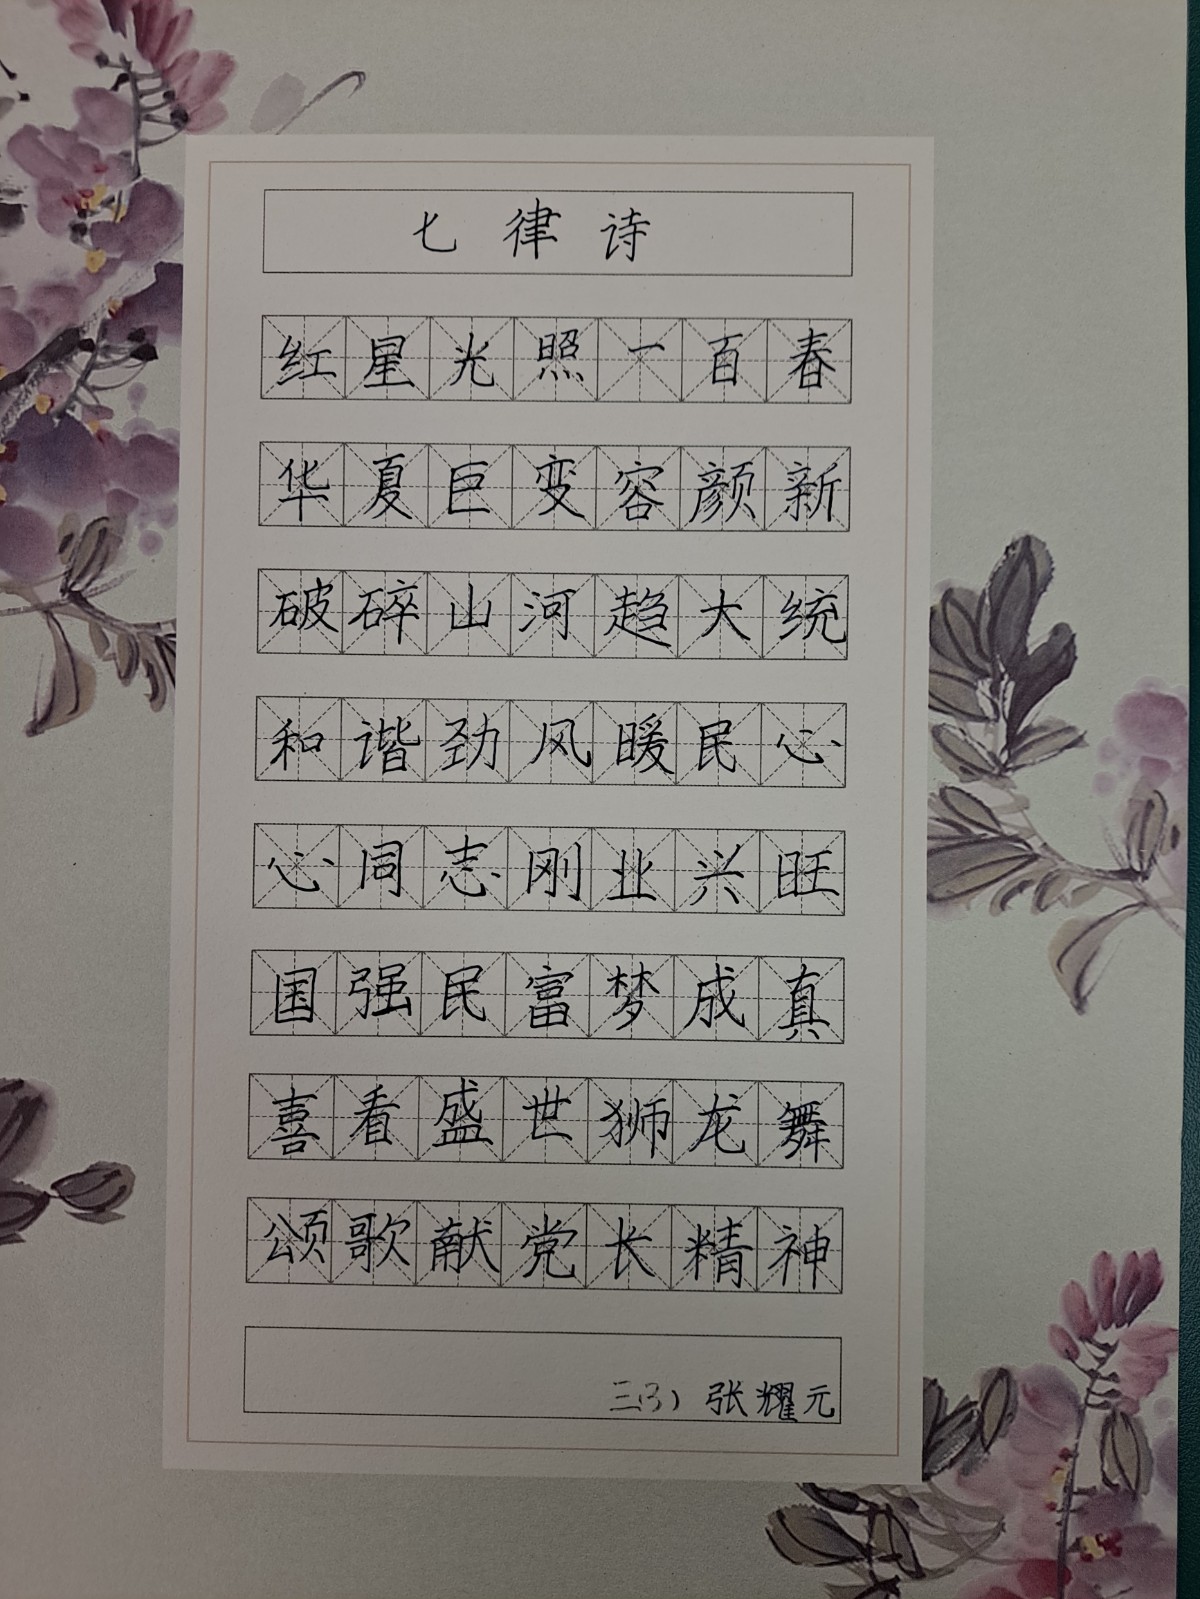 七律诗
红星光照一百春
华夏巨变容颜新
破碎山河趋大统
和谐劲风暖民心
心同志刚业兴旺
国强民富梦成真
喜看盛世狮龙舞
颂歌献党长精神
三(3) 张耀元